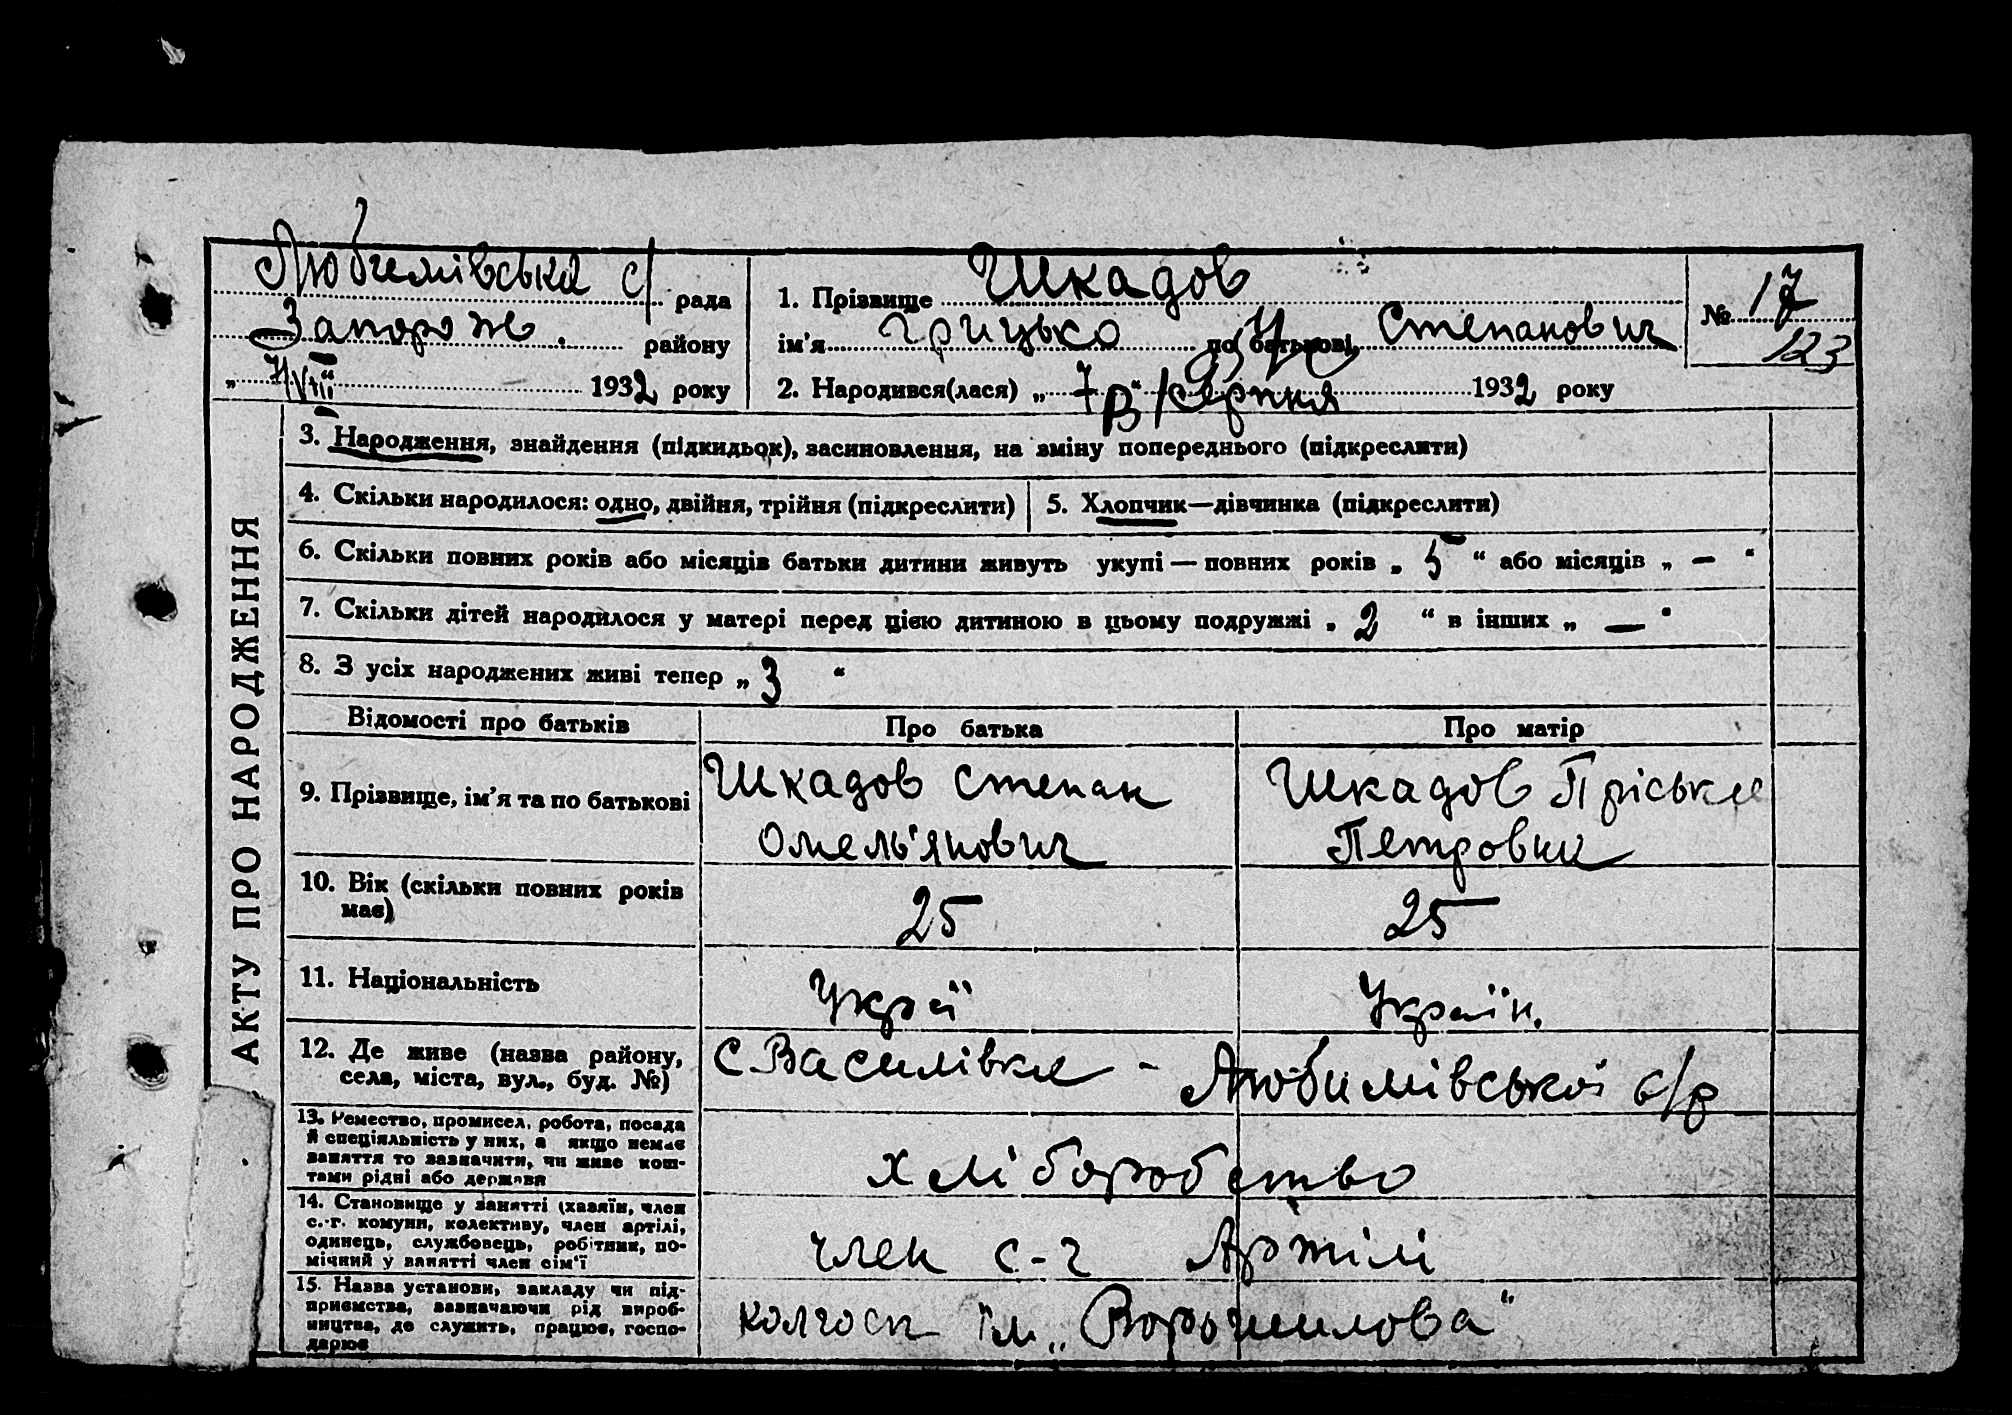 Любимівська с/ рада
Запорож. району
„ 7/VIII “ 1932 року
1. Прізвище Шкадов
ім'я Грицько по батькові Степанович
2. Народився(лася) „ 7 “ Серпня 1932 року
№ 17
123
АКТУ ПРО НАРОДЖЕННЯ
3. Народження, знайдення (підкидьок), засиновлення, на зміну попереднього (підкреслити)
4. Скільки народилося: одно, двійня, трійня (підкреслити)
5. Хлопчик—дівчинка (підкреслити)
6. Скільки повних років або місяців батьки дитини живуть укупі — повних років „ 5 “ або місяців „ — “
7. Скільки дітей народилося у матері перед цією дитиною в цьому подружжі „ 2 “ в інших „ — “
8. З усіх народжених живі тепер „ 3 “
Відомості про батьків
Про батька
Про матір
9. Прізвище, ім'я та по батькові
Шкадов Степан
Омель'янович
Шкадов Пріська
Петровна
10. Вік (скільки повних років
має)
25
25
11. Національність
Украї
Україн.
12. Де живе (назва району,
села, міста, вул., буд. №)
С. Василівка - Любимівської с/р
13. Ремество, промисел, робота, посада
й спеціяльність у них, а якщо немає
заняття то зазначити, чи живе кош-
тами рідні або держави
хліборобство
14. Становище у занятті (хазяїн, член
с.-г. комуни, колективу, член артілі,
одинець, службовець, робітник, по-
мічний у занятті член сім'ї
член с-г Артілі
15. Назва установи, закладу чи під-
приємства, зазначаючи рід вироб-
ництва, де служить, працює, госпо-
дарює
колгосп ім. „Ворошилова“